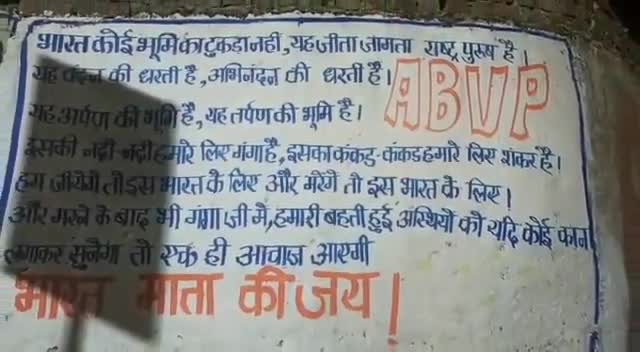 भारत कोई भूमि का टुकड़ा नहीं, यह जीता जागता राष्ट्र पुरुष है।
यह वंदन की धरती है, अभिनंदन की धरती है।
ABVP
यह अर्पण की भूमि है, यह तर्पण की भूमि है।
इसकी नदी-नदी हमारे लिए गंगा है, इसका कंकड़-कंकड़ हमारे लिए शंकर है।
हम जीयेंगे तो इस भारत के लिए और मरेंगे तो इस भारत के लिए।
और मरने के बाद भी गंगा जी में, हमारी बहती हुई अस्थियों को यदि कोई कान
लगाकर सुनेगा तो एक ही आवाज आएगी
भारत माता की जय!